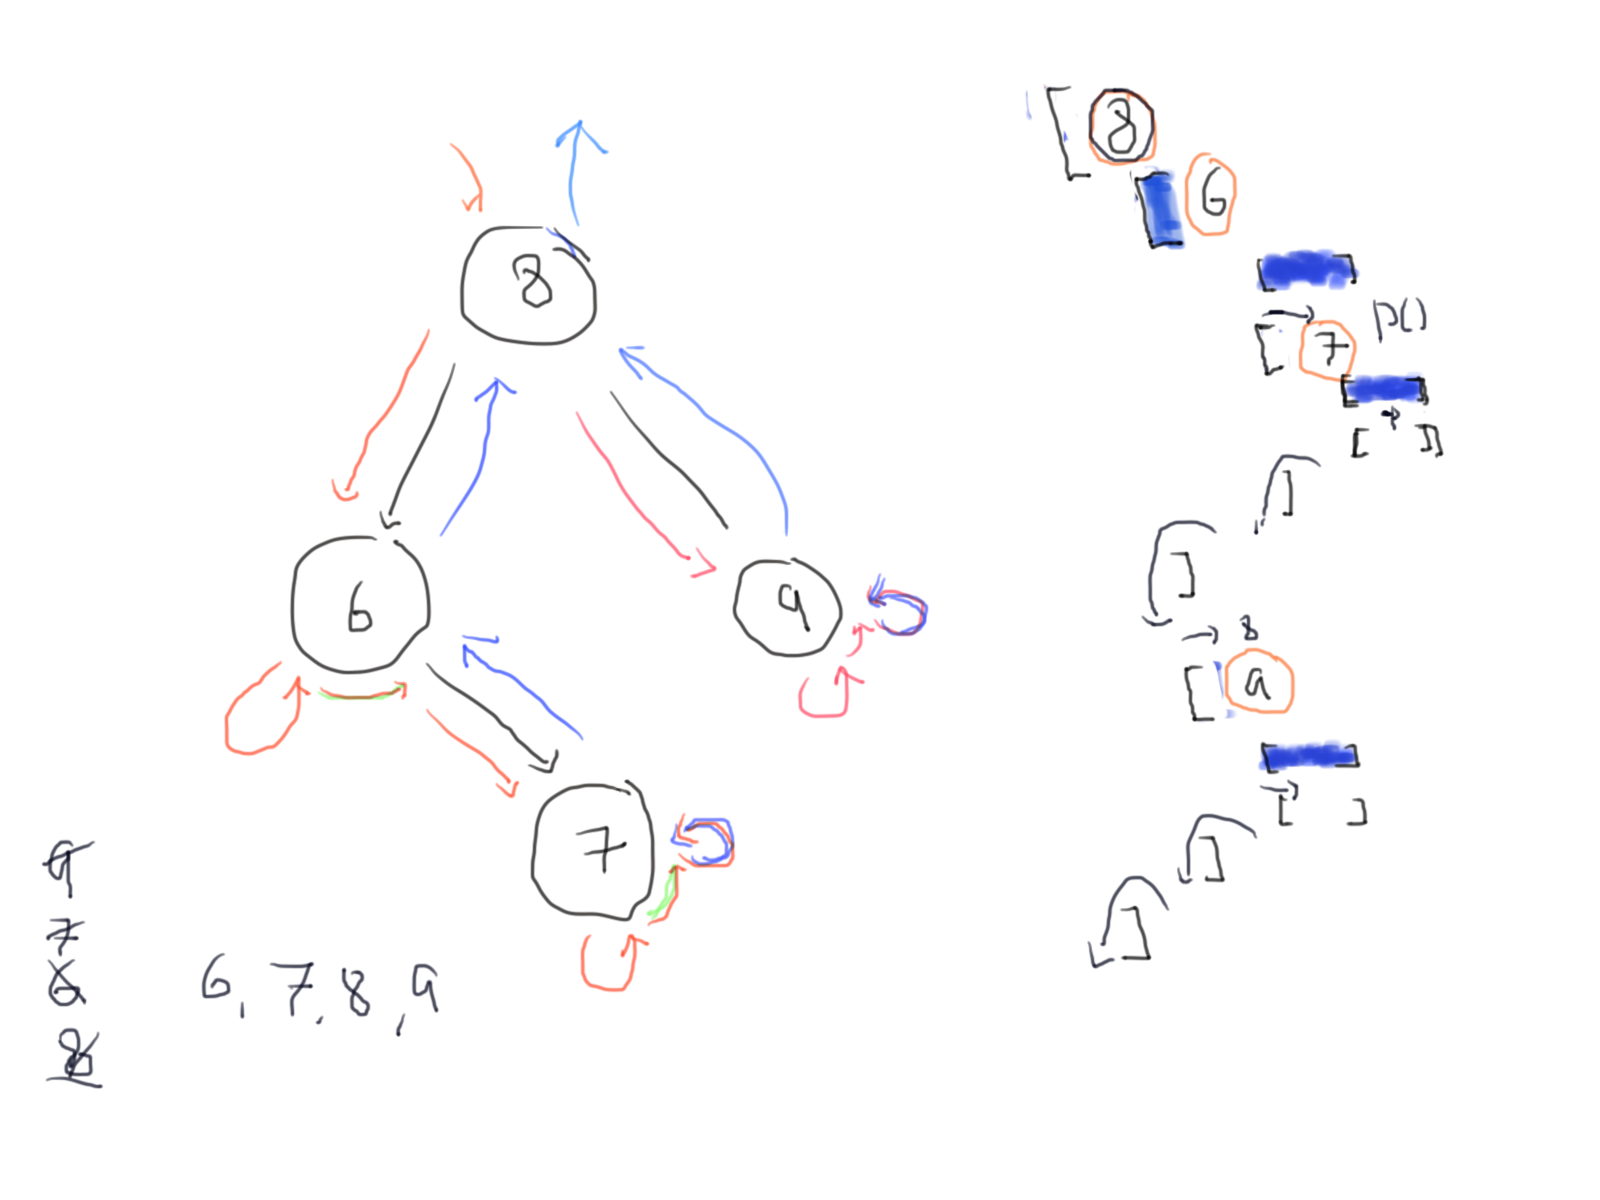 8
6
9
7
9
7
6
8
6, 7, 8, 9
[ 8
[ 6
[ ]
[ 7 p()
[ ]
[ ]]
]
]
8
[ 9
[ ]
[ ]
]
]